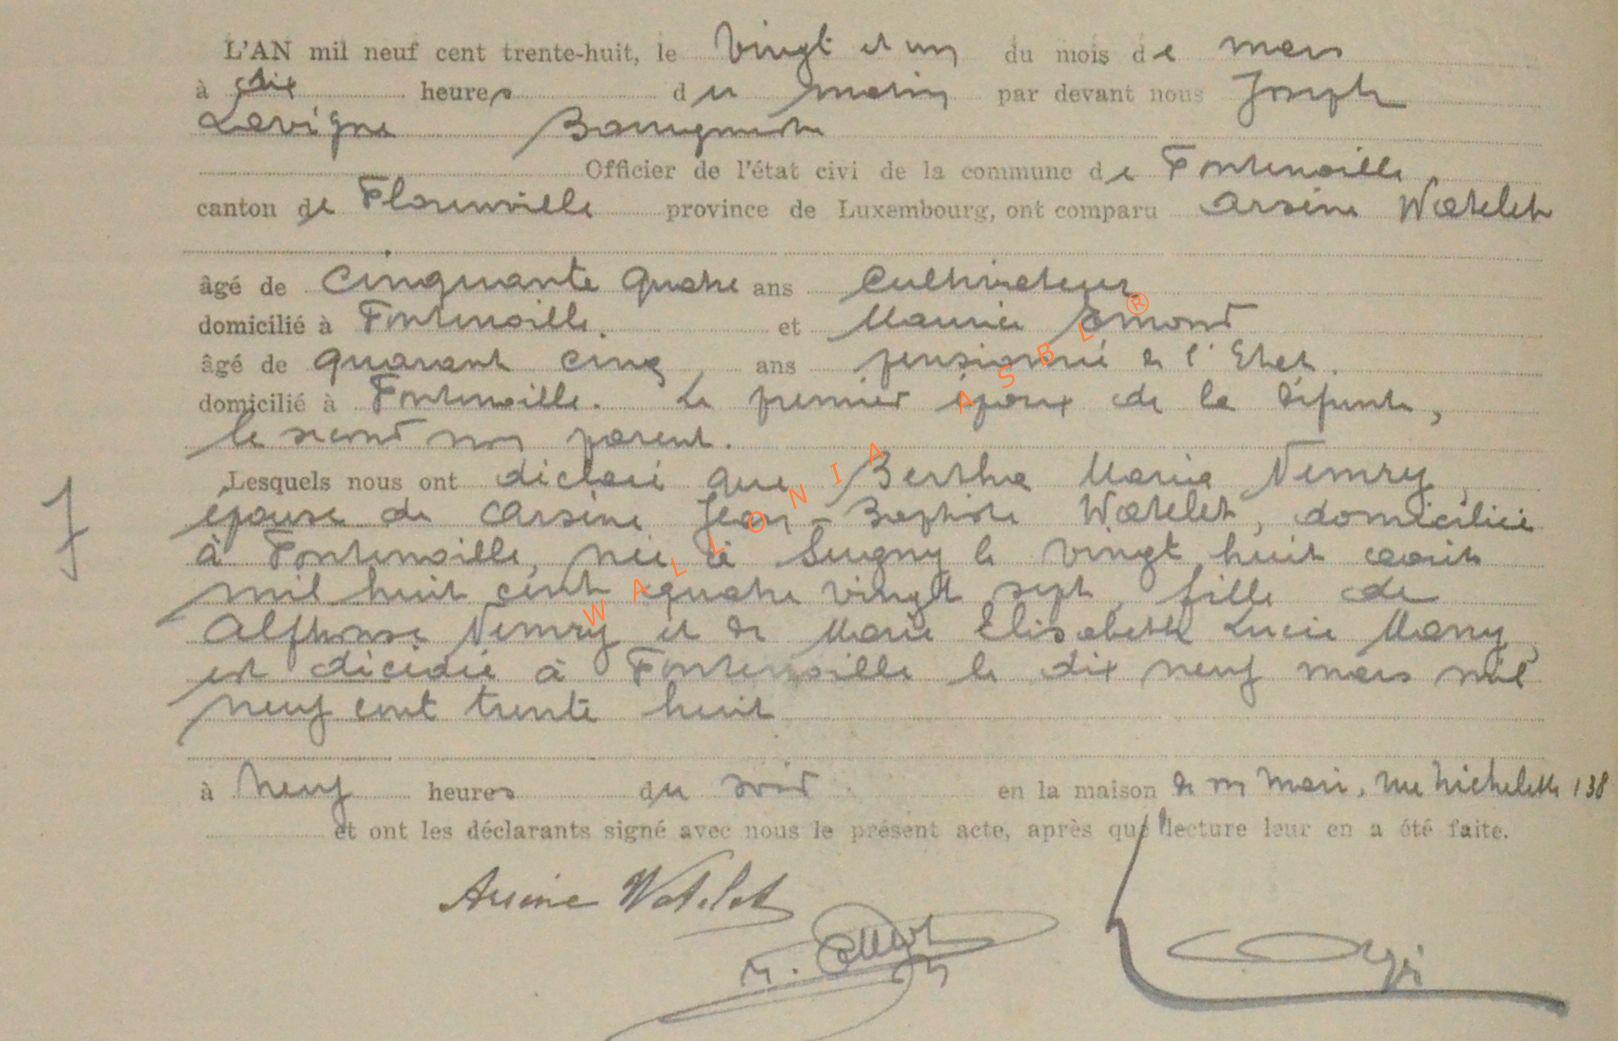 L'AN mil neuf cent trente-huit, le Vingt et un du mois de mars
à dix heures du matin par devant nous Joseph
Lavigne Bourgmestre
Officier de l'état civi de la commune de Fontenoille
canton de Florenville province de Luxembourg, ont comparu Arsène Watelet
âgé de cinquante quatre ans cultivateur
domicilié à Fontenoille. et Maurice Emond
âgé de quarante cinq ans pensionné de l'Etat.
domicilié à Fontenoille. Le premier époux de la défunte,
le second non parent.
Lesquels nous ont déclaré que Bertha Maria Nemry,
épouse de Arsène Jean-Baptiste Watelet, domiciliée
à Fontenoille, née à Sugny le vingt huit août
mil huit cent quatre vingt sept, fille de
Alphonse Nemry et de Marie Elisabeth Lucie Many,
est décédée à Fontenoille le dix neuf mars mil
neuf cent trente huit
à neuf heures du soir en la maison de son mari, rue 138
et ont les déclarants signé avec nous le présent acte, après que lecture leur en a été faite.
Arsène Watelet
WALLONIA ASBL ®